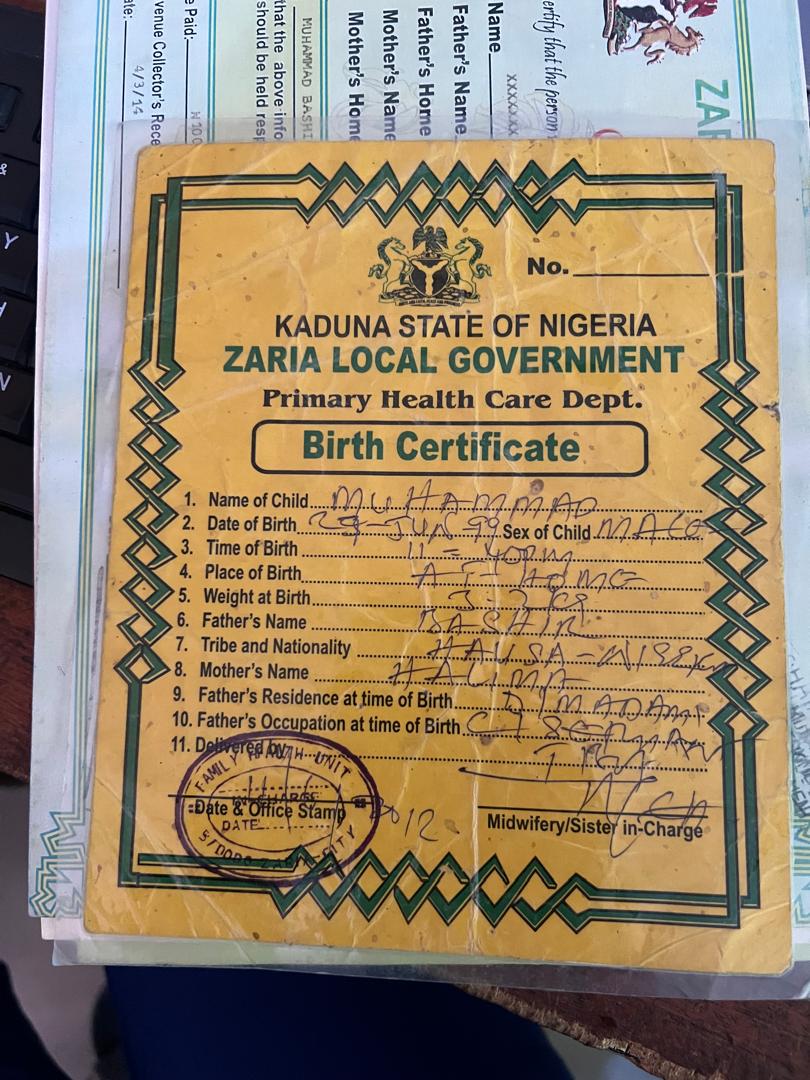 ZAR
ertify that the person
Name XXXXXXX
Father's Name
Father's Home
Mother's Name
Mother's Home
MUHAMMAD BASHI
that the above info
should be held resp
e Paid:- N100
venue Collector's Rece
ate:- 4/3/14
No.
KADUNA STATE OF NIGERIA
ZARIA LOCAL GOVERNMENT
Primary Health Care Dept.
Birth Certificate
1. Name of Child MUHAMMAD
2. Date of Birth JUN 99 Sex of Child MALE
3. Time of Birth
4. Place of Birth AT-HOME
5. Weight at Birth
6. Father's Name BASHIR
7. Tribe and Nationality HAUSA-
8. Mother's Name HALIMA
9. Father's Residence at time of Birth
10. Father's Occupation at time of Birth
11. Delivered by
FAMILY HEALTH UNIT
IN CHARGE
Date & Office Stamp
DATE
Midwifery/Sister in-Charge
Y
N